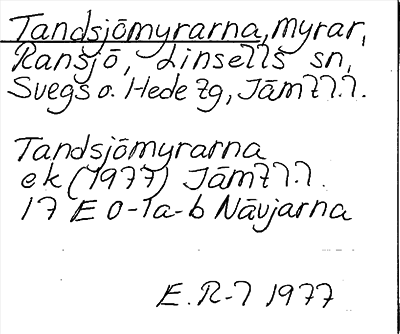 Tandsjömyrarna, myrar,
Ransjö, Linsells sn,
Svegs o. Hede tg, Jämtl.l.
Tandsjömyrarna
ek (1977) Jämtl.l.
17 E 0-1a-b Nävjarna
E.R-l 1977